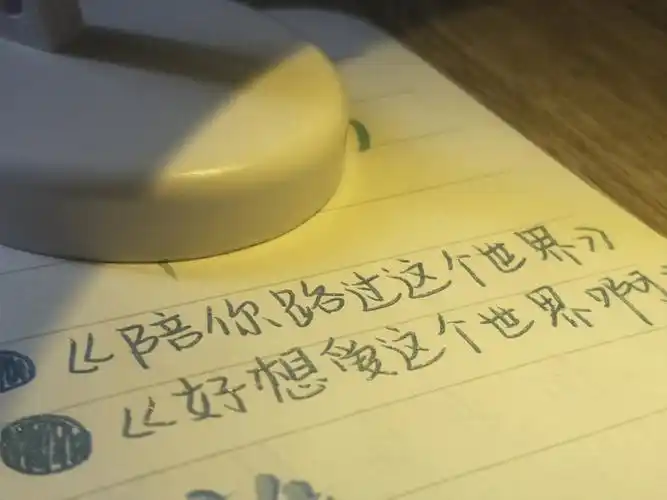 《陪你路过这个世界》
《好想爱这个世界啊